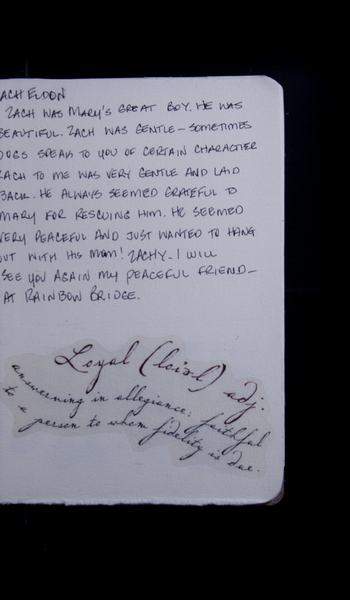 ACH ELDON
ZACH WAS MARY'S GREAT BOY. HE WAS
BEAUTIFUL. ZACH WAS GENTLE - SOMETIMES
DOGS SPEAK TO YOU OF CERTAIN CHARACTER
ZACH TO ME WAS VERY GENTLE AND LAID
BACK. HE ALWAYS SEEMED GRATEFUL TO
MARY FOR RESCUING HIM. HE SEEMED
VERY PEACEFUL AND JUST WANTED TO HANG
OUT WITH HIS MOM! ZACHY - I WILL
SEE YOU AGAIN MY PEACEFUL FRIEND -
AT RAINBOW BRIDGE.
Loyal (loial) adj.
answerning in allegiance; faithful
to a person to whom fidelity is due.